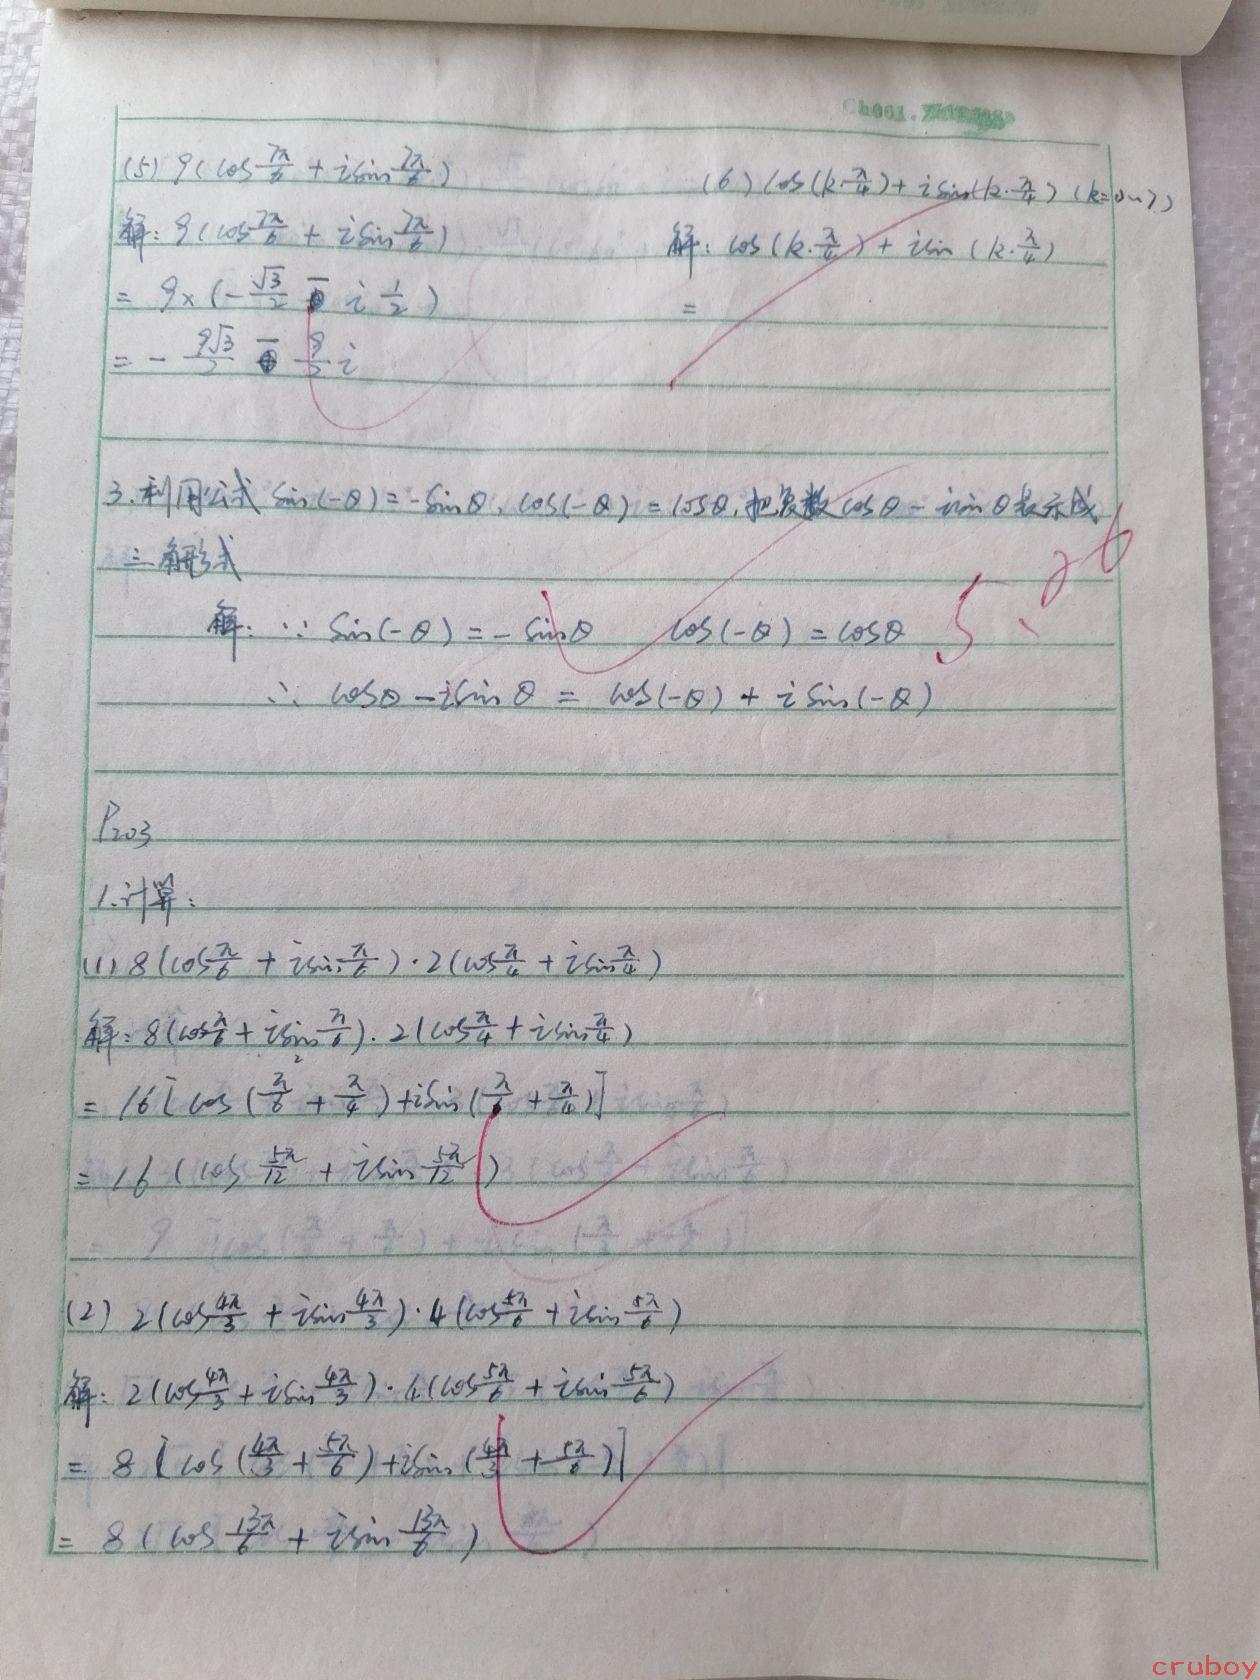 Ch001.
(5) 9(cos7π/6 + isin7π/6)
(6) cos(k·π/4) + isin(k·π/4) (k=0~7)
解: 9(cos7π/6 + isin7π/6)
解: cos(k·π/4) + isin(k·π/4)
= 9×(-√3/2 - i 1/2)
=
= - 9√3/2 - 9/2 i
3.利用公式 sin(-θ)=-sinθ, cos(-θ)=cosθ, 把复数cosθ-isinθ表示成
三角形式
5、26
解: ∵ sin(-θ)=-sinθ cos(-θ)=cosθ
∴ cosθ-isinθ = cos(-θ) + isin(-θ)
P203
1.计算:
(1) 8(cosπ/6 + isinπ/6)·2(cosπ/4 + isinπ/4)
解: 8(cosπ/6 + isinπ/6)·2(cosπ/4 + isinπ/4)
= 16[cos(π/6 + π/4)+isin(π/6 + π/4)]
= 16(cos5π/12 + isin5π/12)
(2) 2(cos4π/3 + isin4π/3)·4(cos5π/6 + isin5π/6)
解: 2(cos4π/3 + isin4π/3)·4(cos5π/6 + isin5π/6)
= 8[cos(4π/3 + 5π/6)+isin(4π/3 + 5π/6)]
= 8(cos13π/6 + isin13π/6)
cruboy